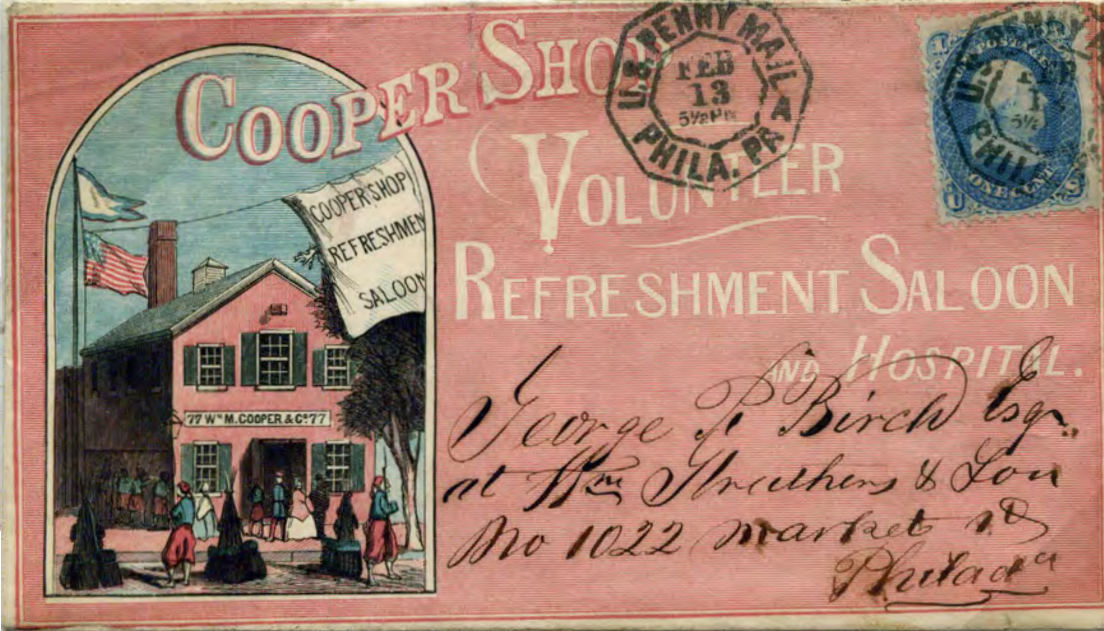 COOPER SHOP
VOLUNTEER
REFRESHMENT SALOON
AND HOSPITAL.
U.S. PENNY MAIL
FEB
13
5½ PM
PHILA. PA
U.S. POSTAGE
ONE CENT
U S
U.S. PENNY
PHIL
COOPER SHOP
REFRESHMEN
SALOON
77 Wᵐ M. COOPER & Cº 77
George P Birch Esqr.
at Wm Struthers & Son
No 1022 market st
Philadª